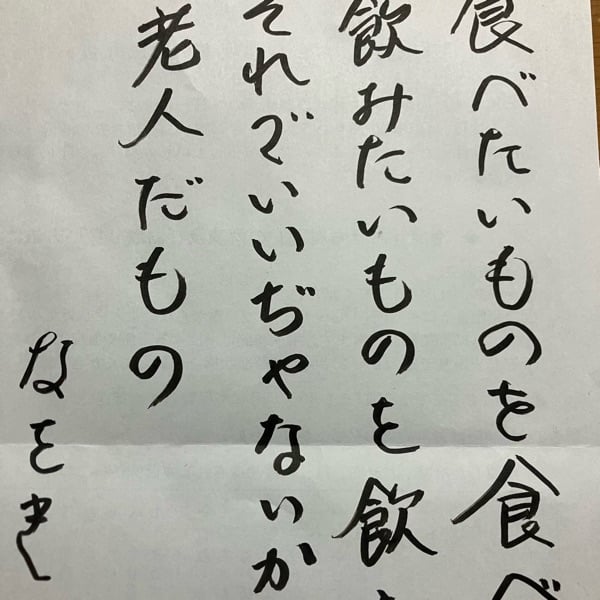 食べたいものを食べ
飲みたいものを飲
それでいいぢゃないか
老人だもの
なをき